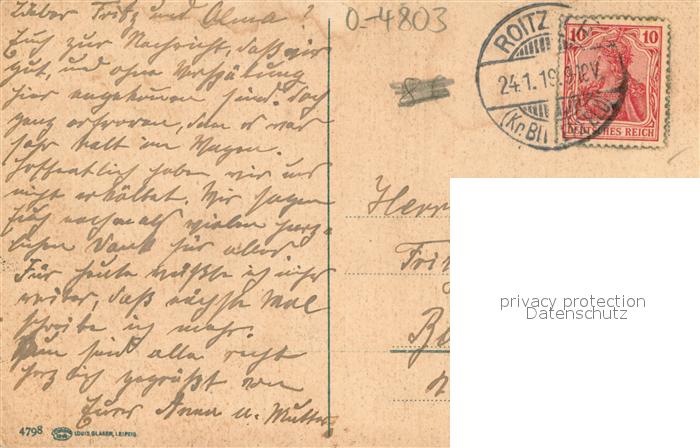 Lieber Fritz und Olma!
Euch zur Nachricht, daß wir
gut, und ohne Verspätung
hier angekommen sind. Doch
ganz erfroren, den es war
sehr kalt im Wagen.
Hoffentlich haben wir uns
nicht erkältet. Wir sagen
Euch nochmals vielen herz-
lichen Dank für alles
Für heute wüßte ich nichts
weiter, daß nächste Mal
schreibe ich mehr.
Nun seid alle recht
herzlich gegrüßt von
Eurer Anna u. Mutter
4798 LOUIS GLASER, LEIPZIG.
0-4803
ROITZ
24.1.19
(Kr. BI
10 10
DEUTSCHES REICH
Herr
privacy protection
Datenschutz